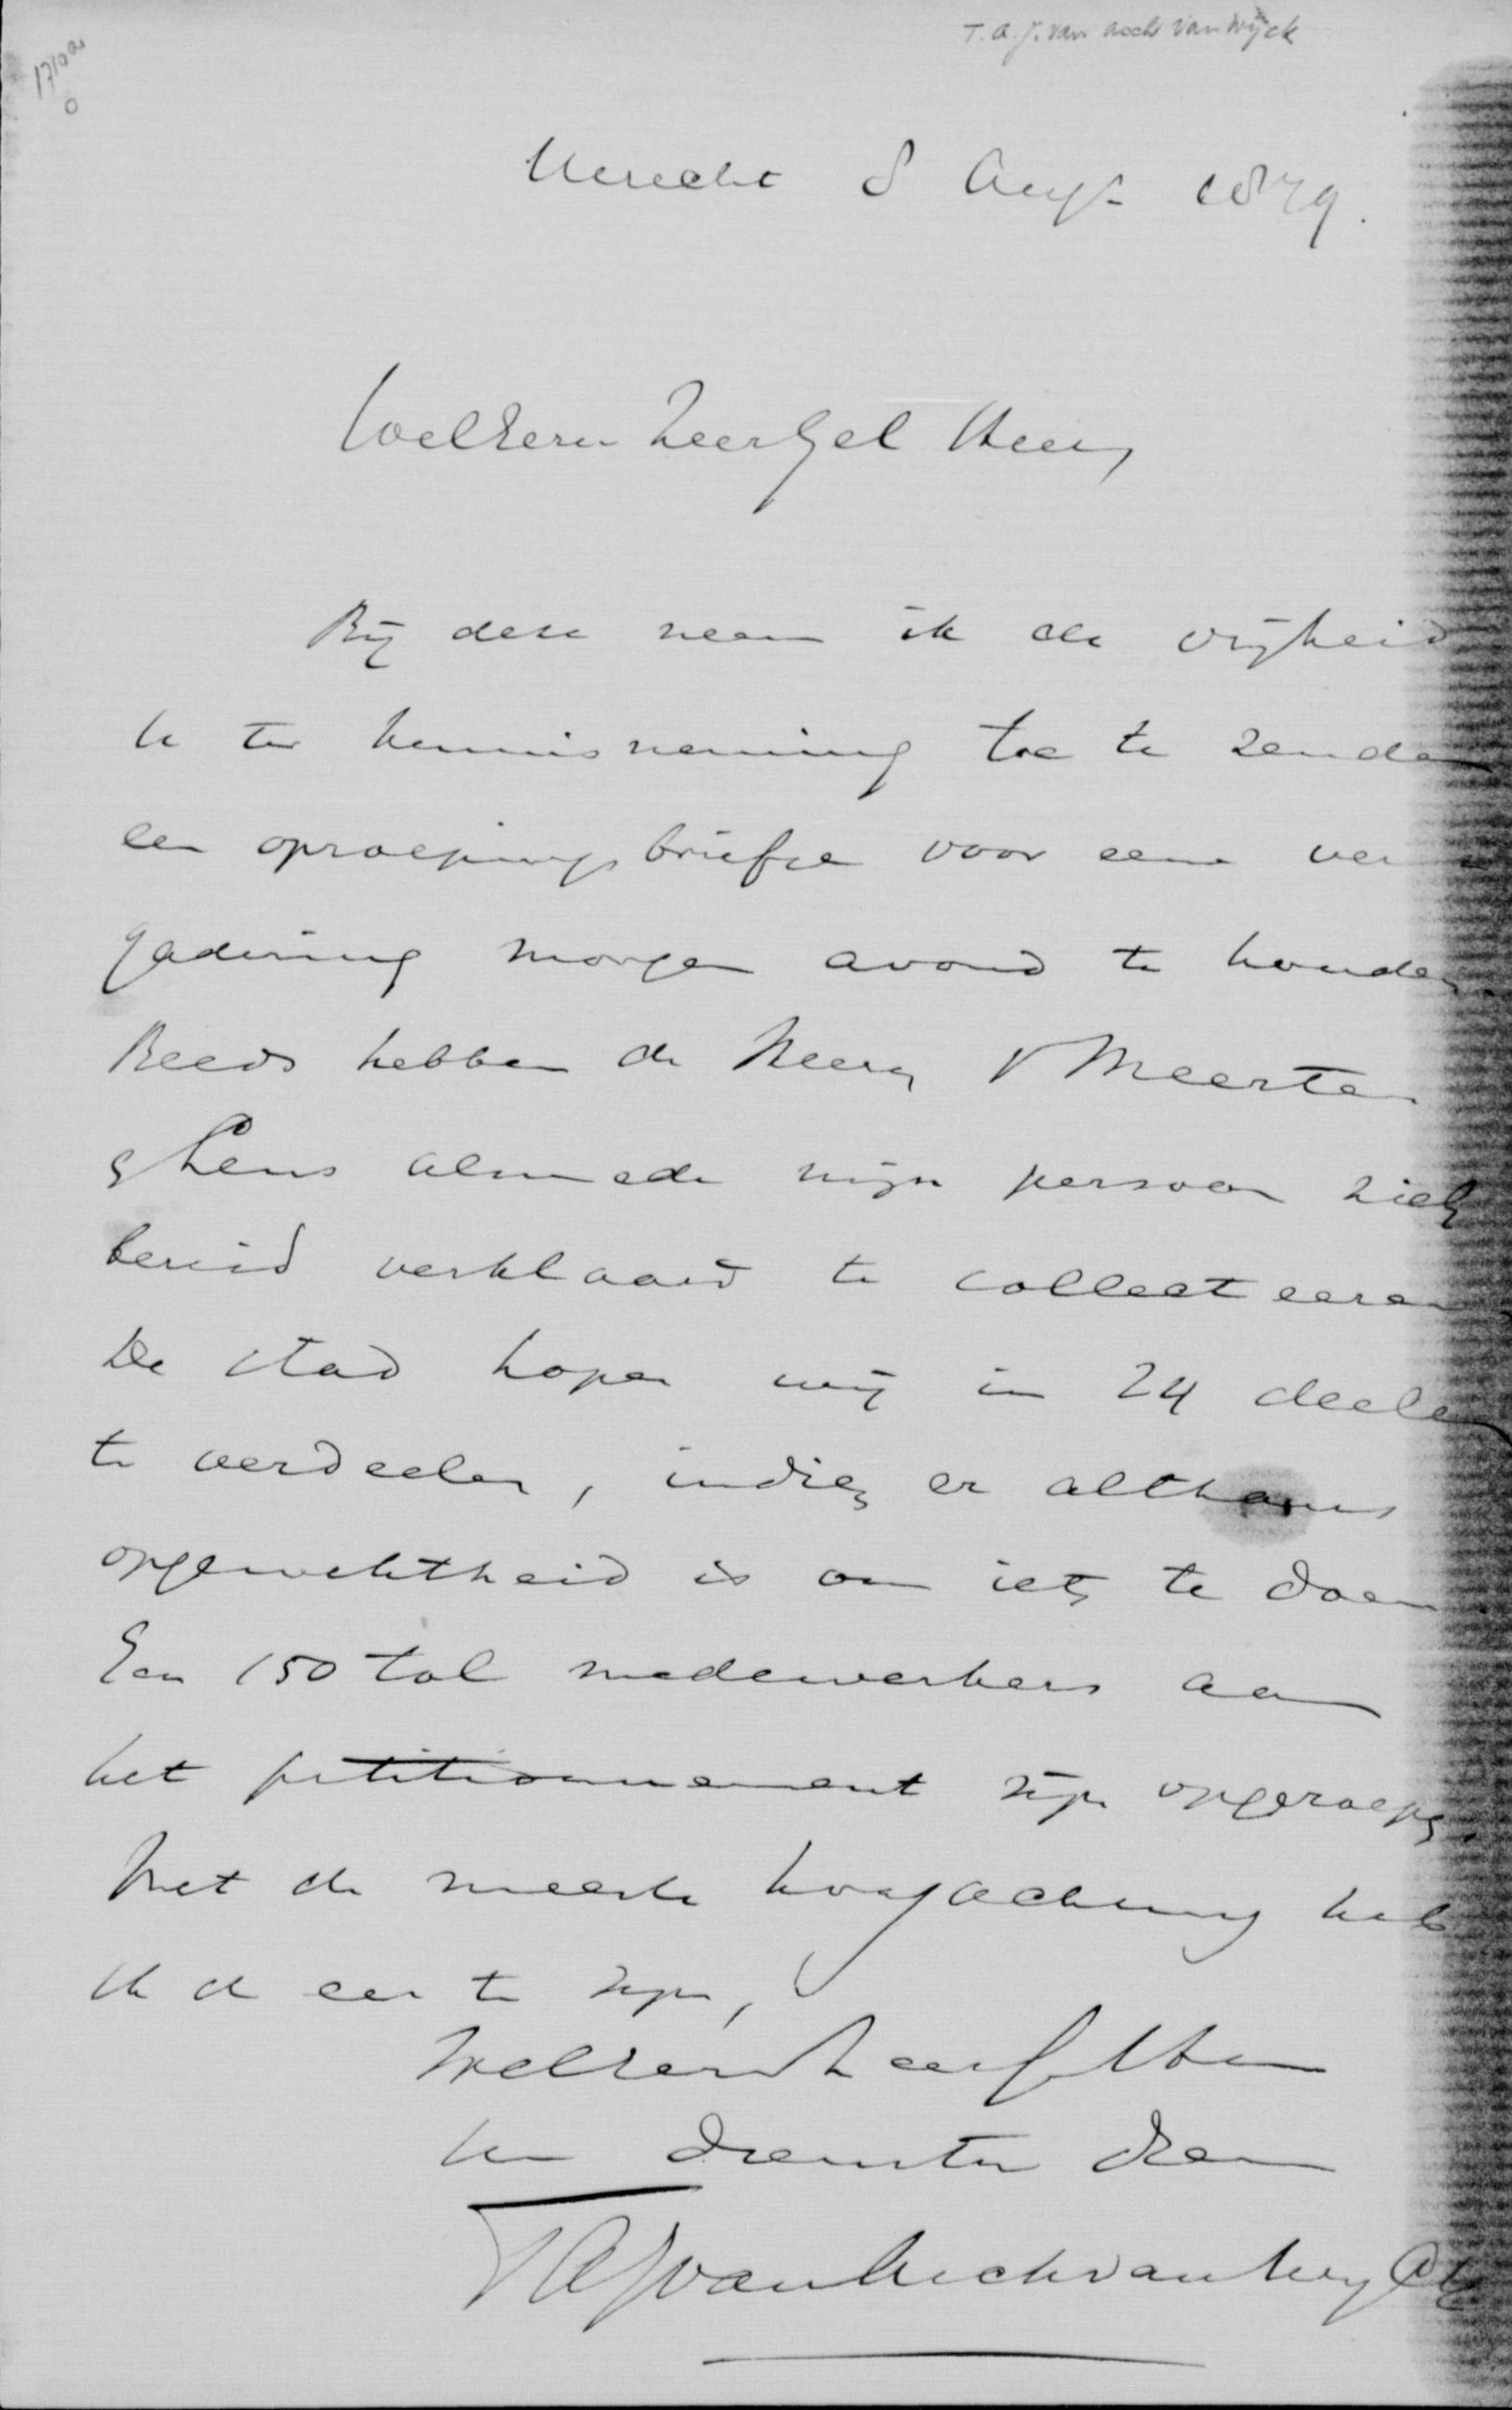 T. A. J. van Asch van Wijck
Utrecht 8 Augs 1879.
WelEerw ZeerGel Heer,
Bij deze neem ik de vrijheid
U ter kennisneming toe te zenden
een oproepingsbriefje voor eene ver
gadering morgen avond te houden.
Reeds hebben de Heeren v Meerten
& Lens alsmede mijn persoon zich
bereid verklaard te collecteeren
De stad hopen wij in 24 deelen
te verdeelen, indien er althans
opgewektheid is om iets te doen.
Een 150 tal medewerkers aan
het petitionnement zijn opgeroepen.
Met de meeste hoogachting heb
ik de eer te zijn,
WelEerw ZeerGel Heer
Uw Dienstw Dien
TAJvanAschvanWijck